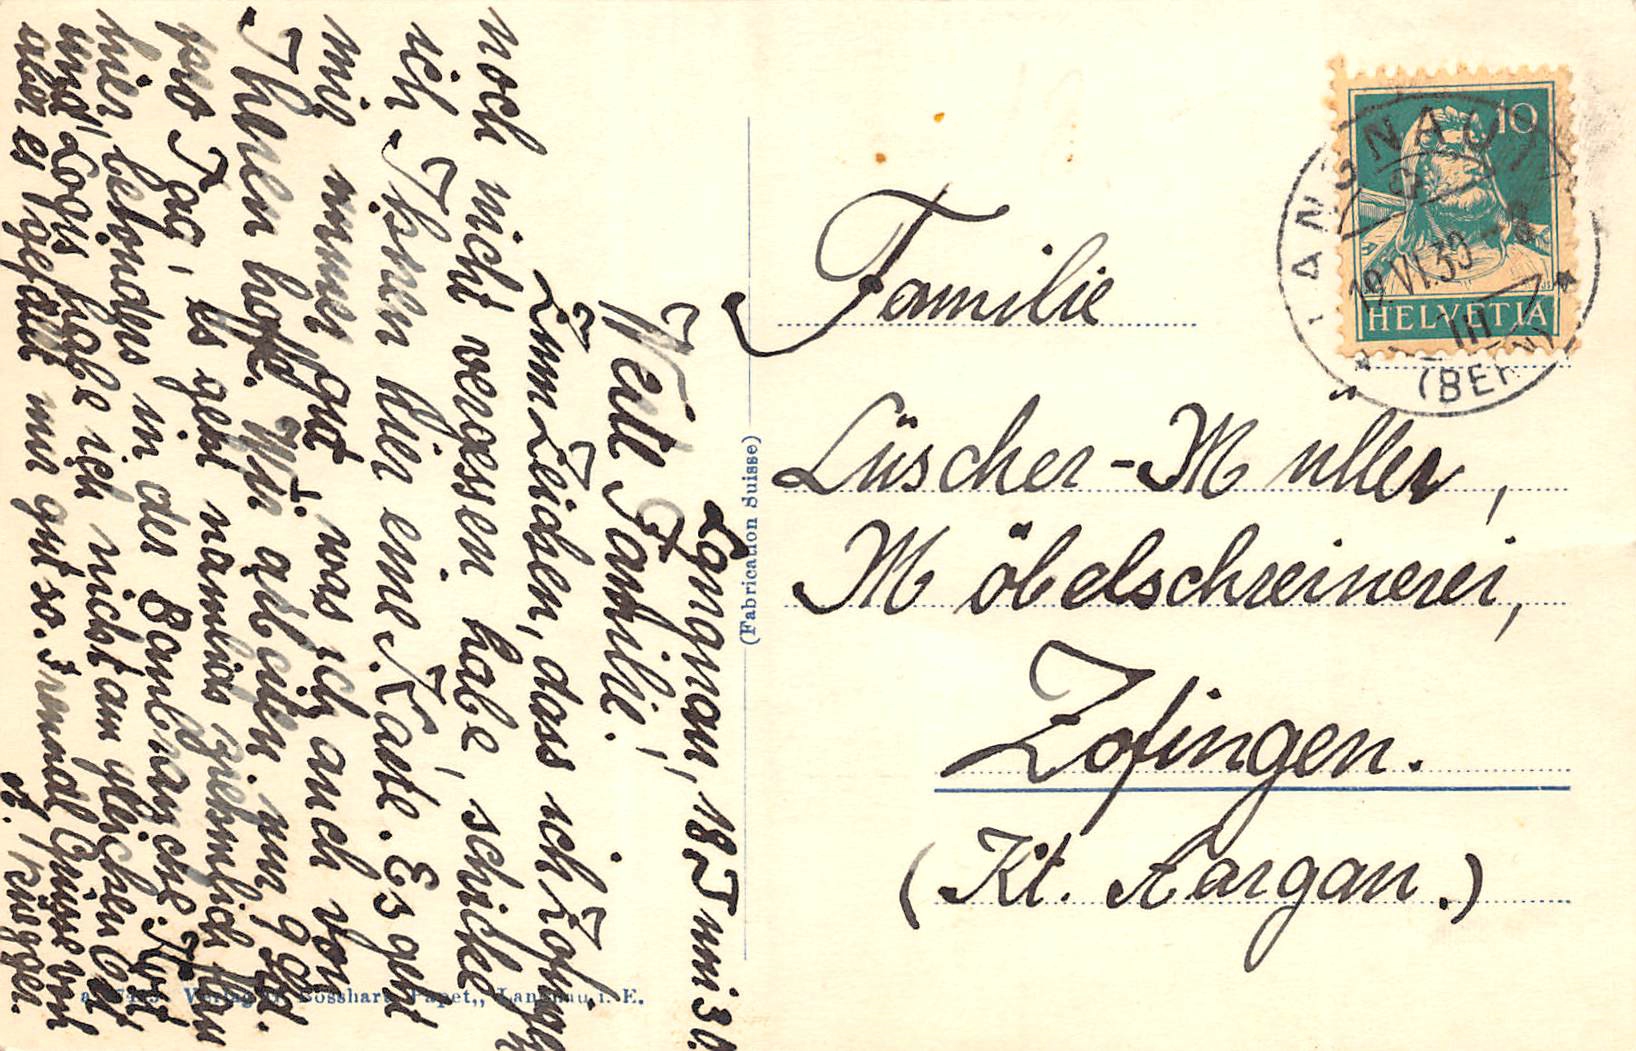 Langnau, 18 Juni 30.
Wert. Familie!
Zum Zeichen, dass ich Zofingen
noch nicht vergessen habe, schicke
ich Ihnen hier eine Karte. Es geht
mir immer gut, was ich auch von
Ihnen hoffe. Wir arbeiten nur 9
per Tag, es geht nämlich ziemlich
hier besonders in der Baubranche. Kost
und Logis habe ich nicht am gleichen Ort
aber es gefällt mir gut so. Grüsse von
Familie
Lüscher-Müller,
Möbelschreinerei,
Zofingen.
(Kt. Aargau.)
(Fabrication Suisse)
Verlag Bosshard, Papet., Langnau i. E.
10
HELVETIA
LANGNAU
19.VI.30
III
(BERN)